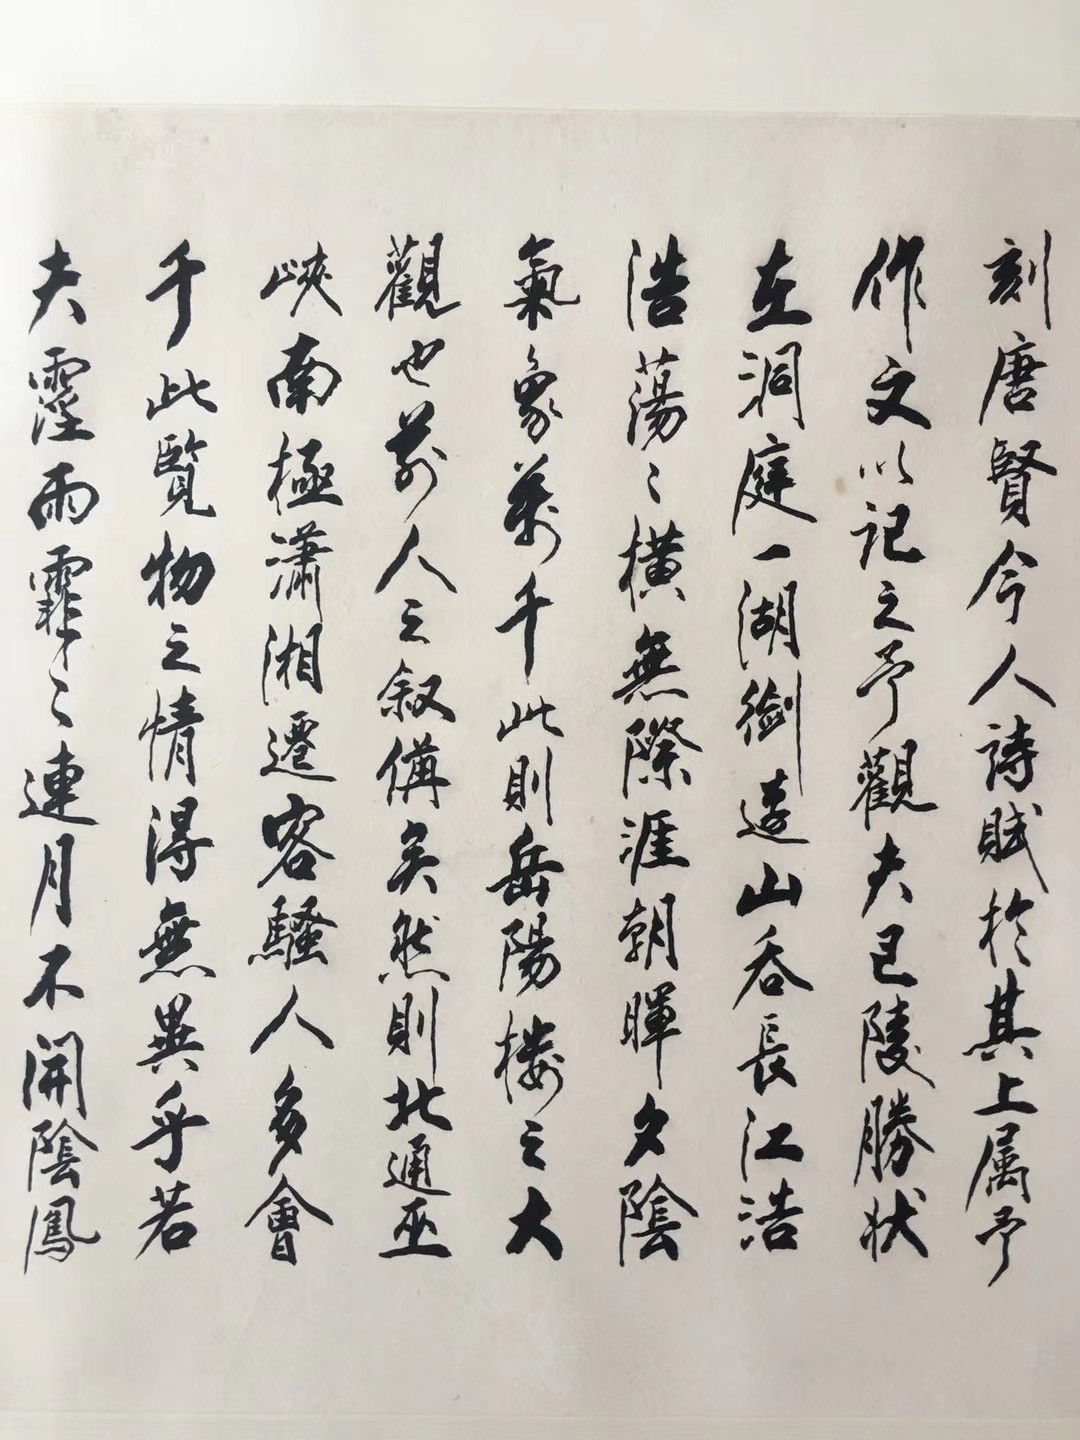 刻唐賢今人詩賦於其上属予
作文以记之予觀夫巴陵勝状
在洞庭一湖銜遠山吞長江浩
浩蕩〻横無際涯朝暉夕陰
氣象萬千此則岳陽楼之大
觀也前人之叙備矣然則北通巫
峽南極瀟湘遷客騷人多會
于此覽物之情得無異乎若
夫霪雨霏〻連月不開陰鳳